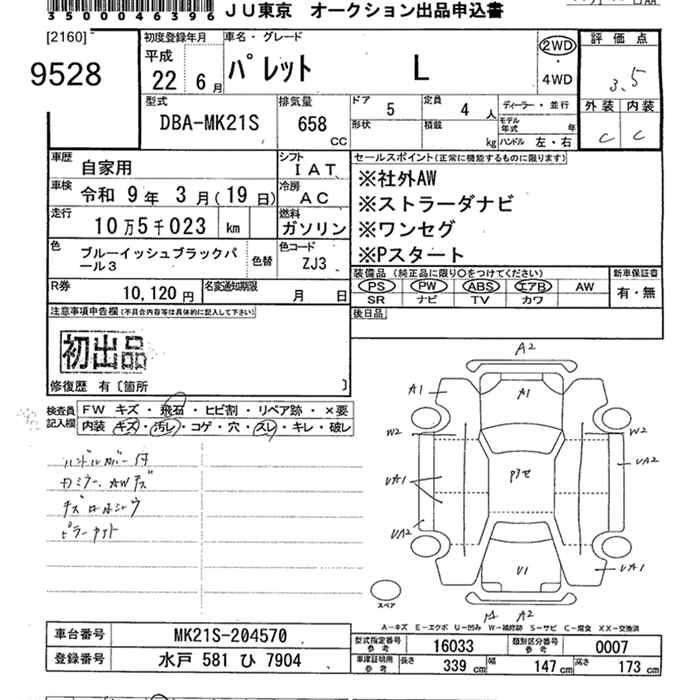 3500046396 JU東京 オークション出品申込書
[2160]
9528
初度登録年月
平成
22年 6月
車名・グレード
パレット L
2WD
・
4WD
評価点
3.5
外装 内装
C C
型式
DBA-MK21S
排気量
658
CC
ドア 5
定員 4 人
形状
積載 kg
ディーラー・並行
モデル年式 年
ハンドル 左・右
車歴 自家用
シフト IAT
車検 令和 9年 3月(19日)
冷房 AC
走行 10万5千023 km
燃料 ガソリン
色 ブルーイッシュブラックパール3
色替
色コード ZJ3
R券 10,120円
名変通知期限 月 日
セールスポイント(正常に機能するものに限ります)
※社外AW
※ストラーダナビ
※ワンセグ
※Pスタート
装備品(純正品に限り○をつけてください)
PS PW ABS エアB AW
SR ナビ TV カワ
新車保証書
有・無
後日品
注意事項申告欄(不具合内容等は具体的に記入して下さい)
初出品
修復歴 有〔箇所 〕
検査員記入欄
FW キズ・飛石・ヒビ割・リペア跡・×要
内装 キズ・汚レ・コゲ・穴・スレ・キレ・破レ
ハンドルカバー付
ピラーナット
A2
A1
A1
W2
W2
UA1
UA2
UA2
U1
UA1
A2
スペア
A-キズ E-エクボ U-凹み W-補修跡 S-サビ C-腐食 XX-交換済
車台番号 MK21S-204570
登録番号 水戸 581 ひ 7904
型式指定番号 参考 16033
類別区分番号 参考 0007
車庫証明用 参考 長さ 339cm 幅 147cm 高さ 173cm